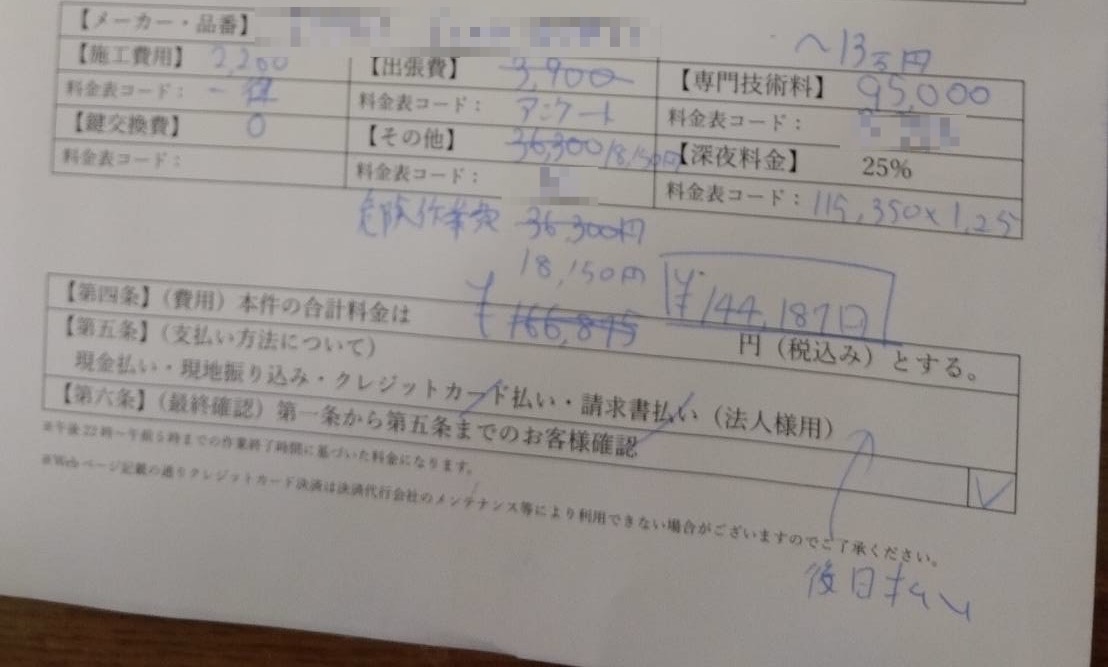 【メーカー・品番】
~13万円
【施工費用】 2,200 【出張費】 3,900 【専門技術料】 95,000
料金表コード： 一律 料金表コード： アンケート 料金表コード：
【鍵交換費】 0 【その他】 36,300 18,150円 【深夜料金】 25%
料金表コード： 料金表コード： 料金表コード： 115,350×1.25
危険作業費 36,300円
18,150円
【第四条】（費用）本件の合計料金は ¥166,875 ¥144,187円 円（税込み）とする。
【第五条】（支払い方法について）
現金払い・現地振り込み・クレジットカード払い・請求書払い（法人様用）
【第六条】（最終確認）第一条から第五条までのお客様確認
※午後22時～午前5時までの作業終了時間に基づいた料金になります。
※Webページ記載の通りクレジットカード決済は決済代行会社のメンテナンス等により利用できない場合がございますのでご了承ください。
後日払い